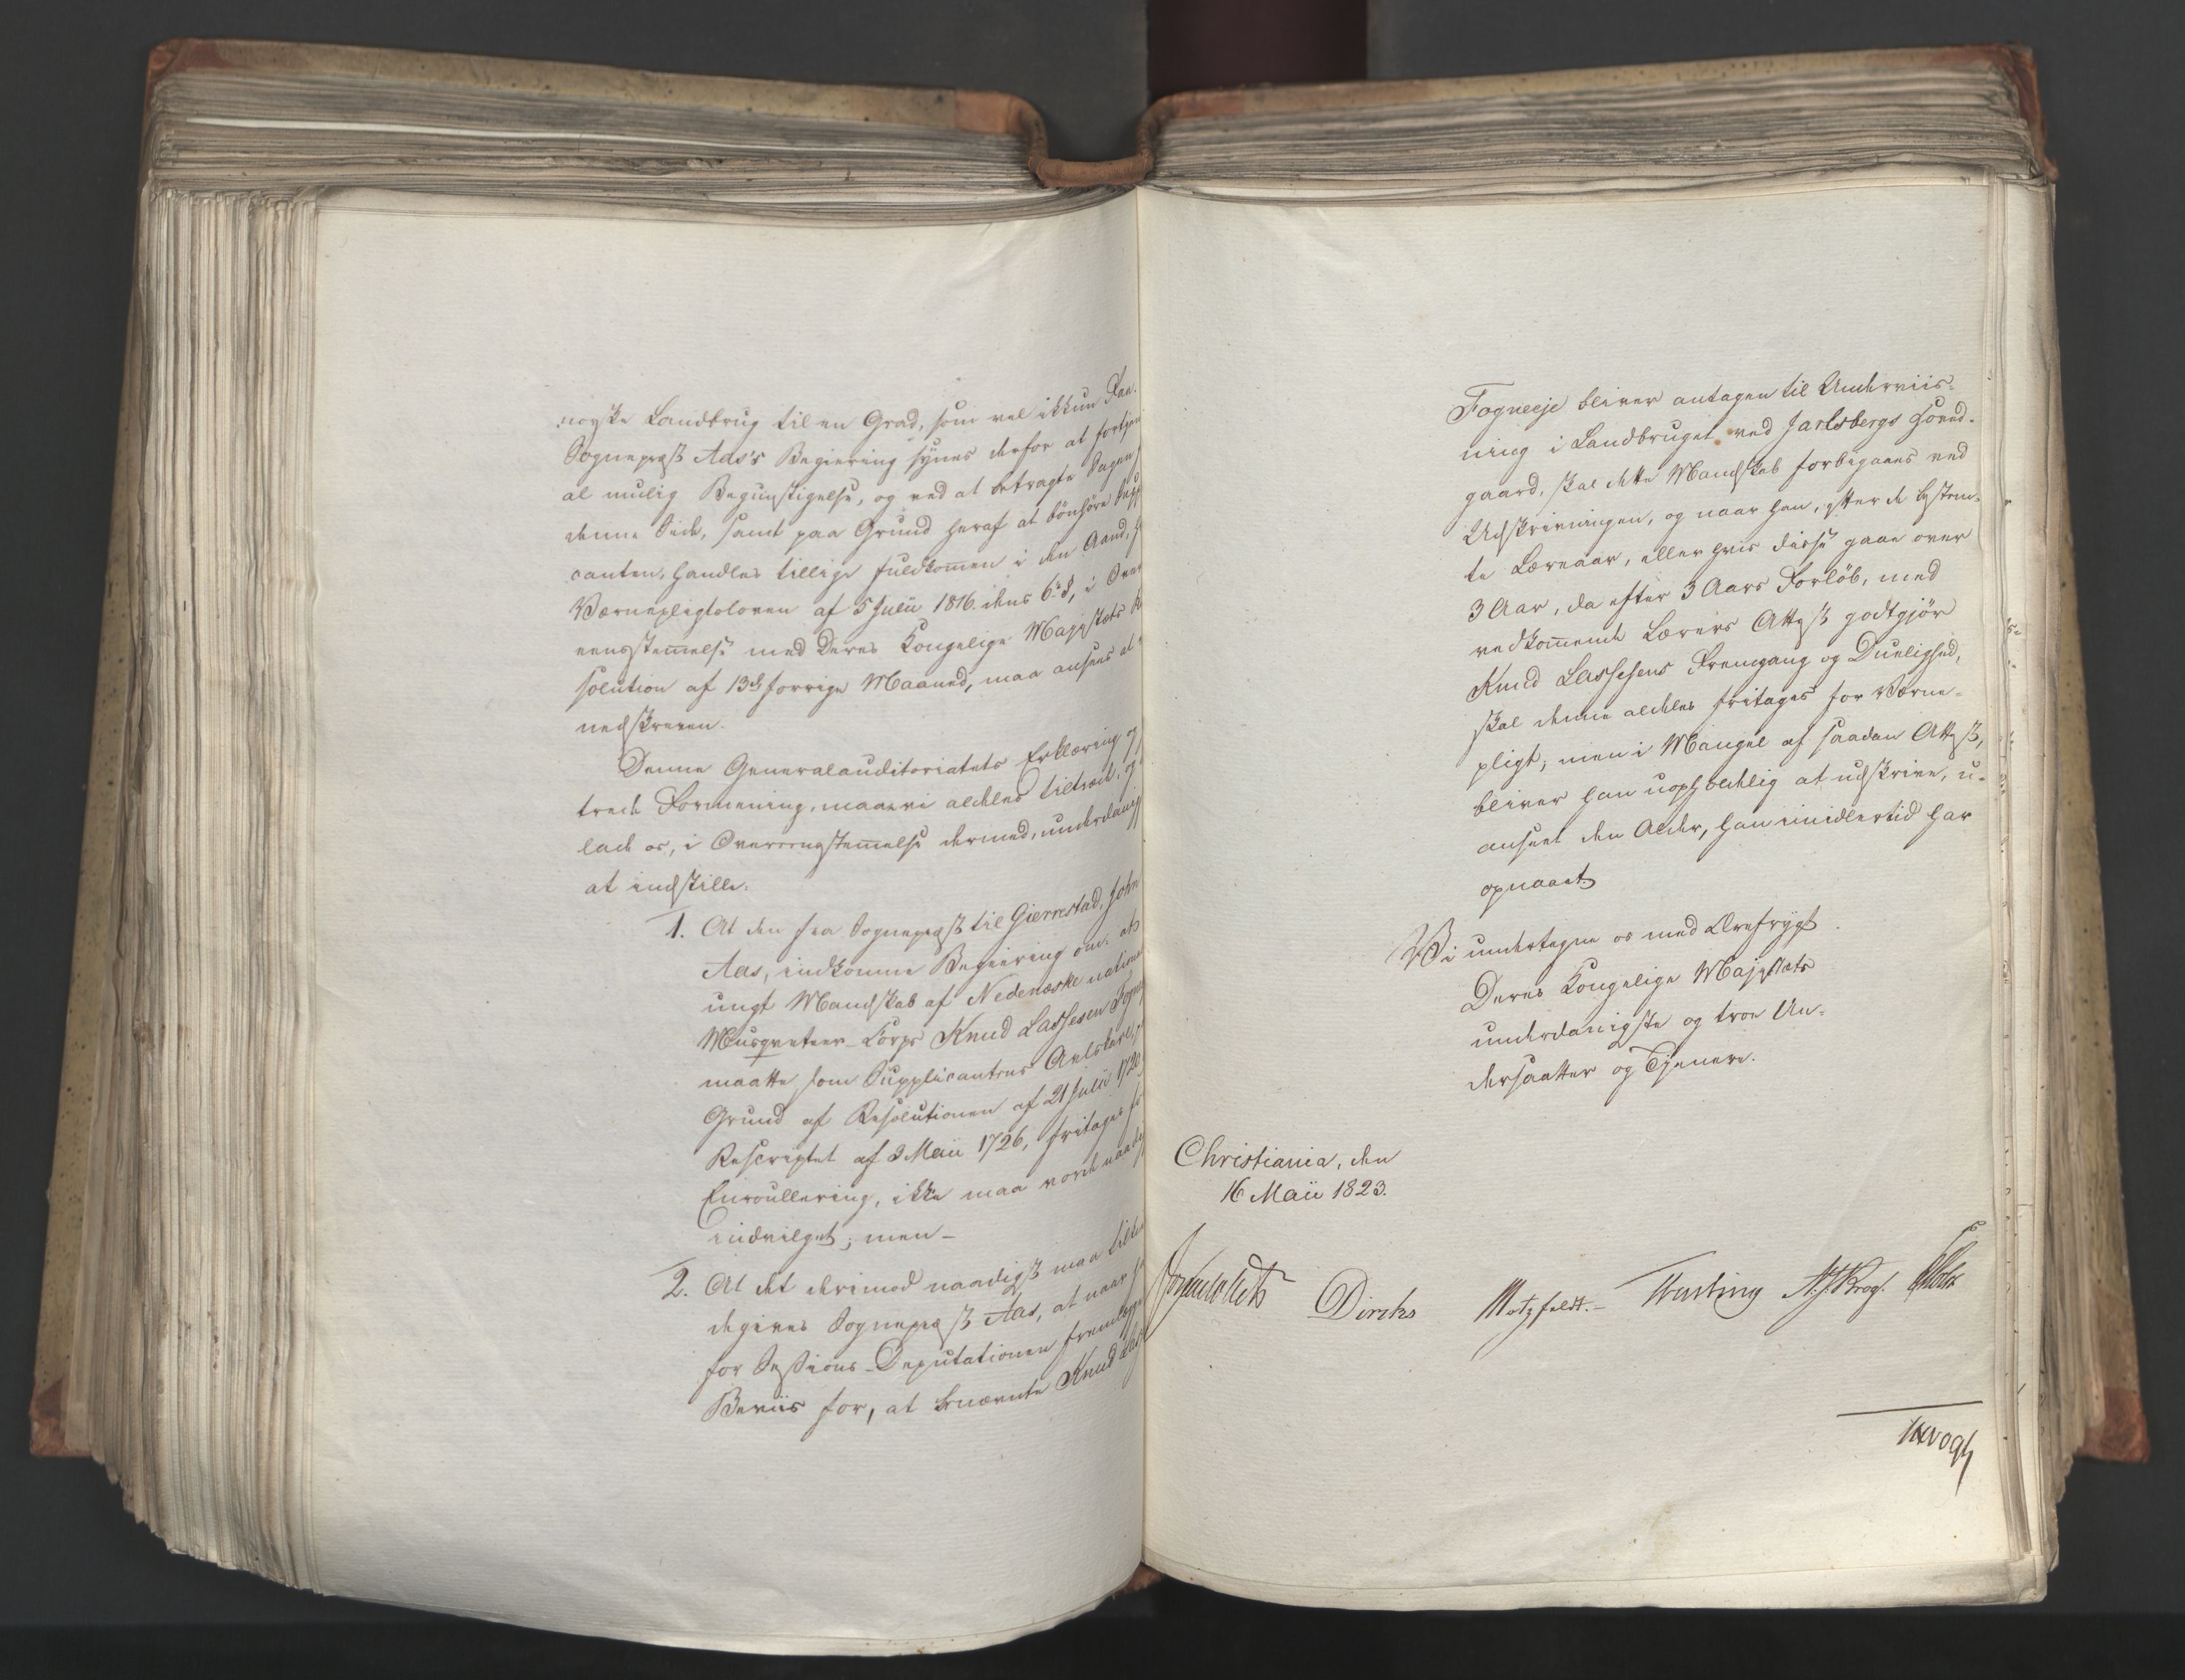 norske Landbrug til en Grad, som vel ikkun Faa.
Sognepræst Aas's Begiering synes derfor at fortjen
al mulig Begunstigelse, og ved at betragte Sagen
denne Side, samt paa Grund heraf at bönhöre Supp
canten, handles tillige fuldkommen i den Aand,
Værnepligtsloven af 5 Julii 1816. dens 6te §, i Over
eensstemmelse med Deres Kongelige Majestæts
solution af 13de forrige Maaned, maa ansees at
nedskreven.
Denne Generalauditoriatets Erklæring og
Formening, maae vi aldeles tiltræde, og
lade os, i Overeensstemmelse dermed, underdanig
at indstille:
1. At den fra Sognepræst til Gierrestad, John
Aas, indkomne Begiering om: at
ungt Mandskab af Nedenæske nationa
Musqueteer-Corps Knud Lassesen Fogne
maatte som Supplicantens Avlskarl,
Grund af Resolutionen af 21 Julii 1720
Rescriptet af 3 Maii 1726, fritages fo
Enroullering, ikke maa vorde naadi
indvilget; men-
2. At det derimod naadigst maa tilkien
degives Sognepræst Aas, at naar
for Sessions-Deputationen fremlægges
Beviis for, at benævnte Knud Las
Fogneeje bliver antagen til Underviis-
ning i Landbruget ved Jarlsbergs Hoved-
gaard, skal dette Mandskab forbigaaes ved
Udskrivningen, og naar han, efter de bestem-
te Læreaar, eller hvis disse gaae over
3 Aar, da efter 3 Aars Forlöb, med
vedkommende Lærers Attest godtgjör
Knud Lassesens Fremgang og Duelighed,
skal denne aldeles fritages for Værne-
pligt; men i Mangel af saadan Attest,
bliver han uopholdelig at udskrive, u-
anseet den Alder, han imidlertid har
opnaaet.
Vi undertegne os med Ærefrygt
Deres Kongelige Majestæts
underdanigste og troe Un-
dersaatter og Tjenere.
Christiania, den
16 Maii 1823.
Diriks Motzfeldt.- Treschow